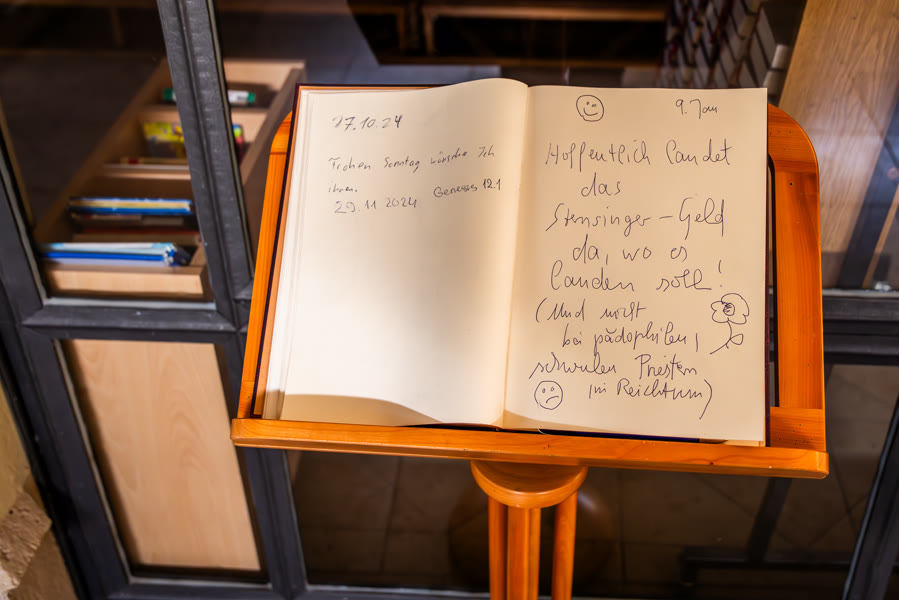 27.10.24
Frohen Sonntag wünsche Ich
ihnen.
29.11 2024 Genesis 12.1
9. Jan
Hoffentlich landet
das
Sternsinger - Geld
da, wo es
landen soll!
(Und nicht
bei pädophilen,
schwulen Priestern
im Reichtum)